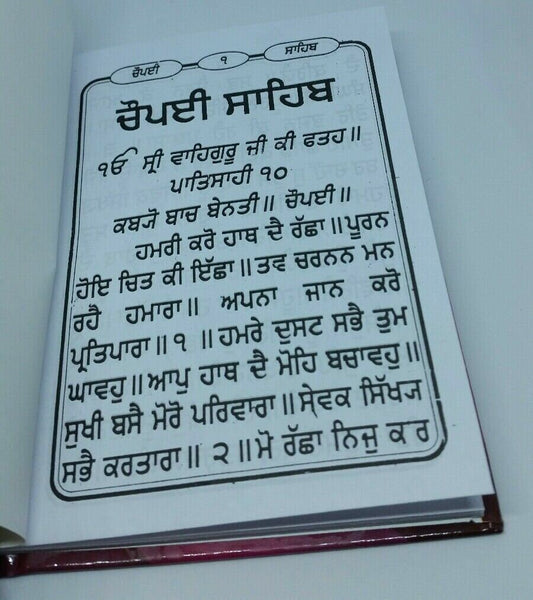 ਚੌਪਈ ੧ ਸਾਹਿਬ
ਚੌਪਈ ਸਾਹਿਬ
ੴ ਸ੍ਰੀ ਵਾਹਿਗੁਰੂ ਜੀ ਕੀ ਫਤਹ॥
ਪਾਤਿਸਾਹੀ ੧੦
ਕਬ੍ਯੋ ਬਾਚ ਬੇਨਤੀ॥ ਚੌਪਈ॥
ਹਮਰੀ ਕਰੋ ਹਾਥ ਦੈ ਰੱਛਾ॥ਪੂਰਨ
ਹੋਇ ਚਿਤ ਕੀ ਇੱਛਾ॥ਤਵ ਚਰਨਨ ਮਨ
ਰਹੈ ਹਮਾਰਾ॥ ਅਪਨਾ ਜਾਨ ਕਰੋ
ਪ੍ਰਤਿਪਾਰਾ॥੧ ॥ਹਮਰੇ ਦੁਸਟ ਸਭੈ ਤੁਮ
ਘਾਵਹੁ॥ਆਪੁ ਹਾਥ ਦੈ ਮੋਹਿ ਬਚਾਵਹੁ॥
ਸੁਖੀ ਬਸੈ ਮੋਰੋ ਪਰਿਵਾਰਾ॥ਸੇਵਕ ਸਿੱਖ੍ਯ
ਸਭੈ ਕਰਤਾਰਾ॥ ੨॥ਮੋ ਰੱਛਾ ਨਿਜੁ ਕਰ